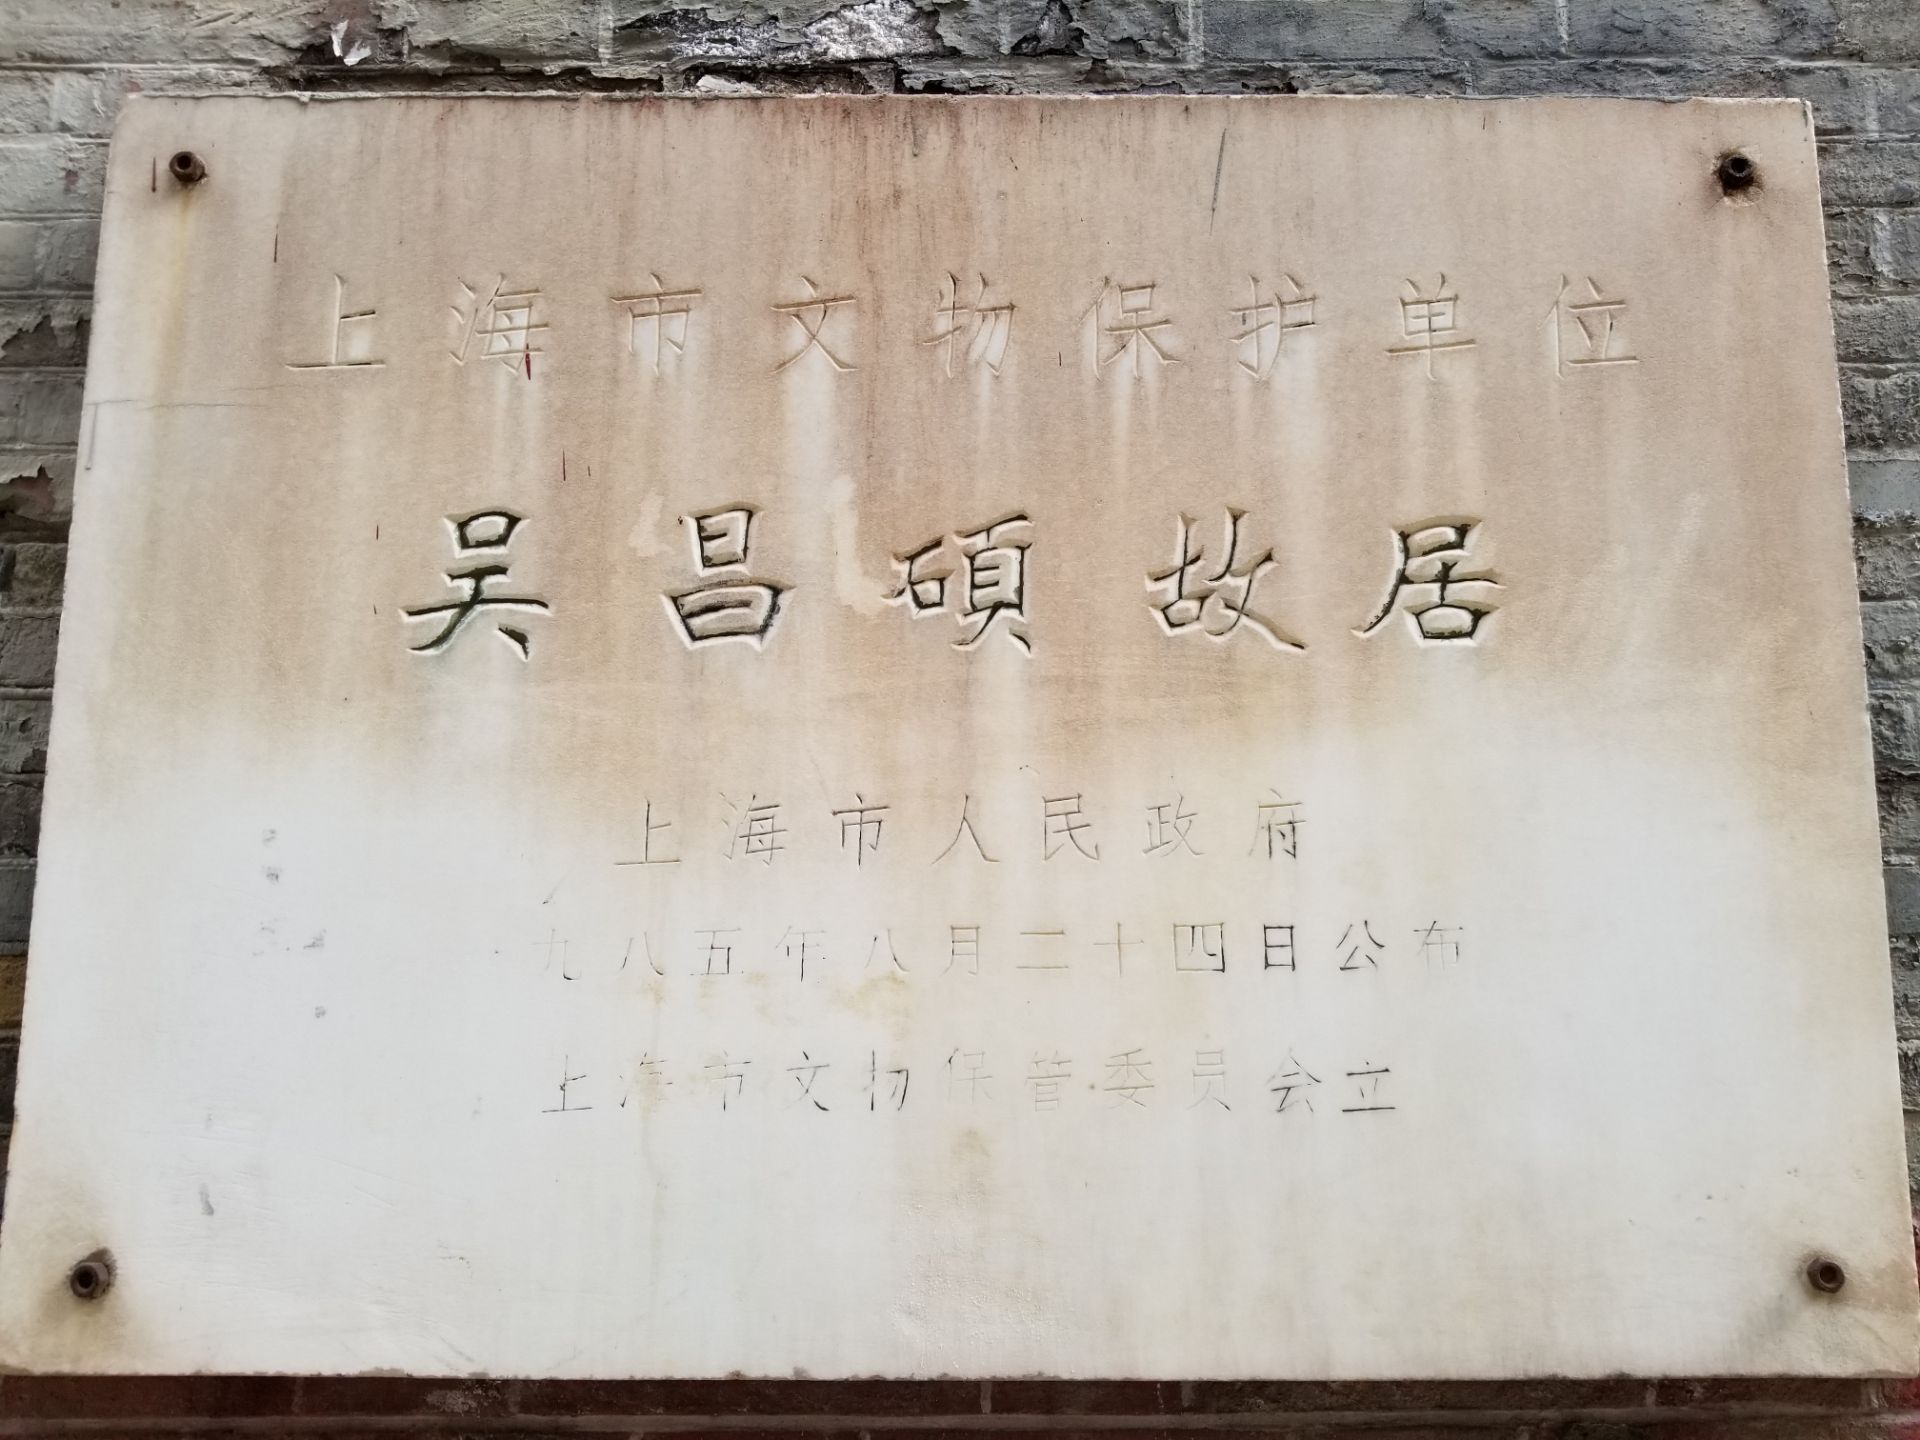 上海市文物保护单位
吴昌碩故居
上海市人民政府
九八五年八月二十四日公布
上海市文物保管委员会立